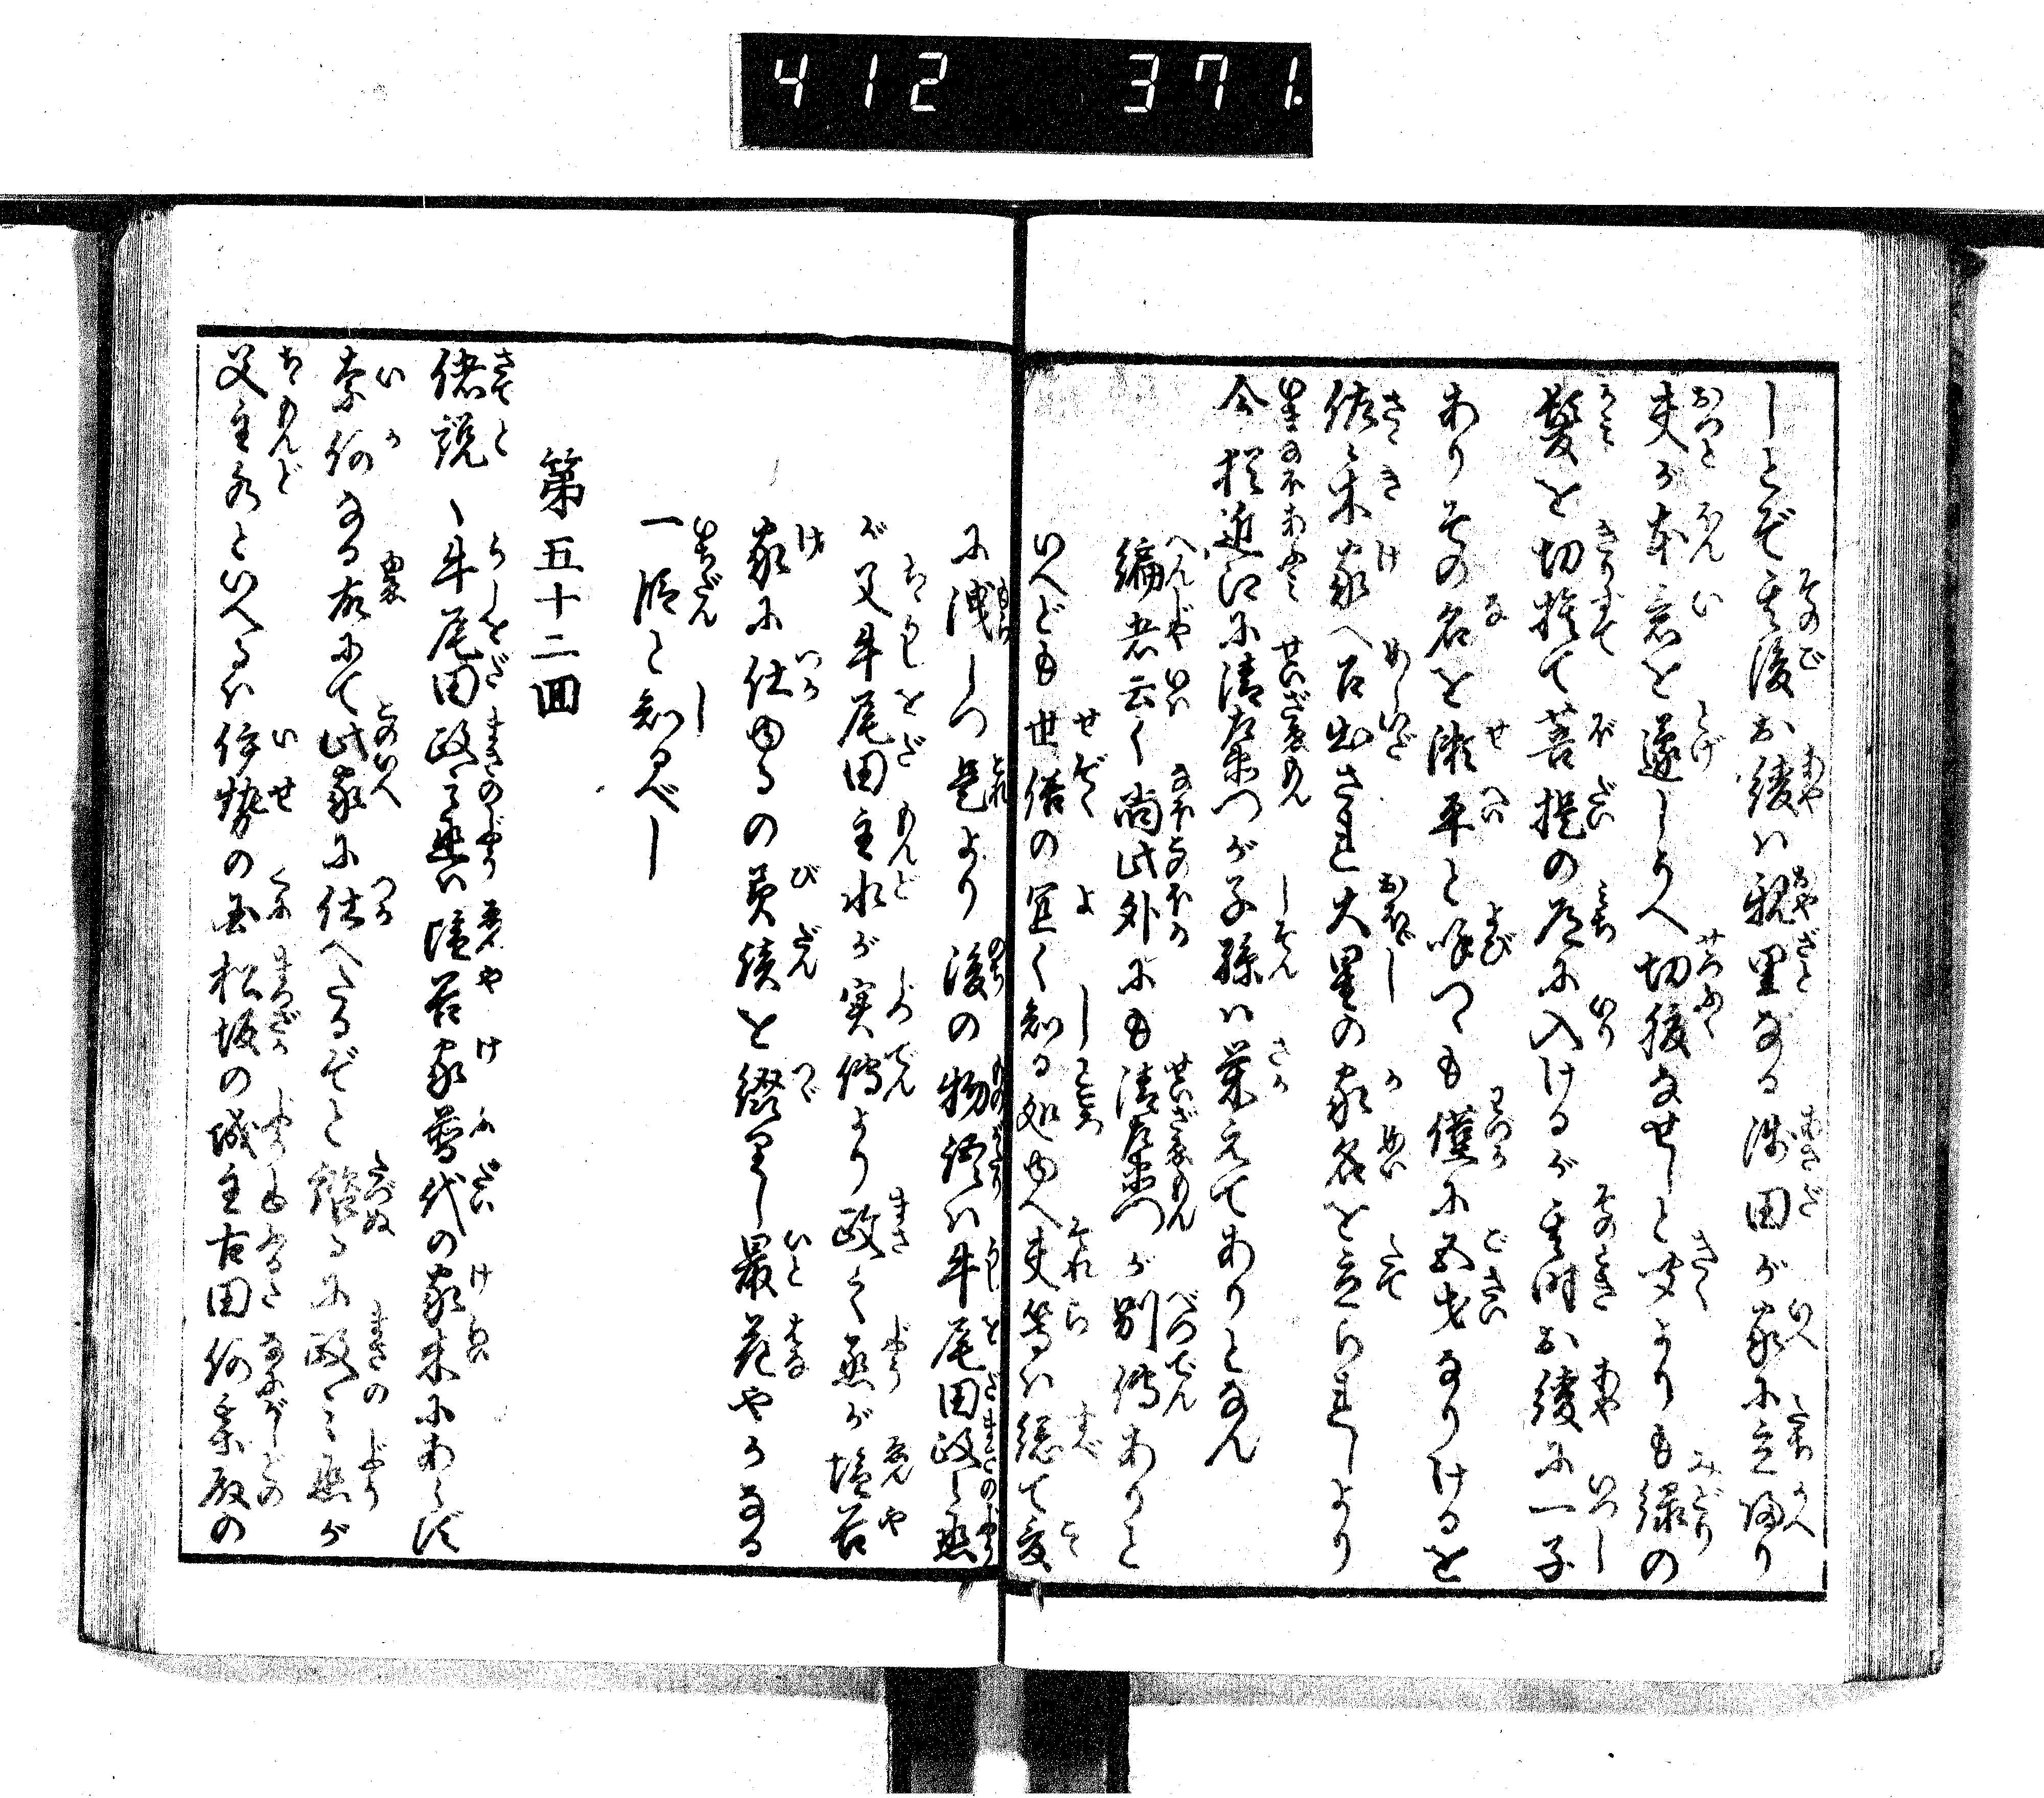 412 371.
しとぞ其後お綾ハ親里なる浅田が家に立帰り
夫が本意を遂しうへ切腹なせしと聞よりも緑の
髪を切捨て菩提の道に入けるが其時お綾に一子
ありその名を瀬平と呼つゝも僅に五才なりけるを
佐々木家へ召出され大星の家名を立られしより
今猶近江に清左衛門が子孫ハ栄えてありとなん
編者云く尚此外にも清左衛門が別傳ありと
いへども世俗の宜く知る処ゆへ夫等ハ總て爰
に洩しつ是より後の物語ハ牛尾田政之丞
が父牛尾田主水が実傳より政之丞が塩谷
家に仕ゆるの美談を綴里し最花やかなる
一段と知るべし
第五十二回
偖説く牛尾田政之丞ハ塩谷家普代の家来にあらず
奈何なる故にて此家に仕へたるぞと繹るに政之丞が
父主水といへるハ伊勢の国松坂の城主古田何某殿の